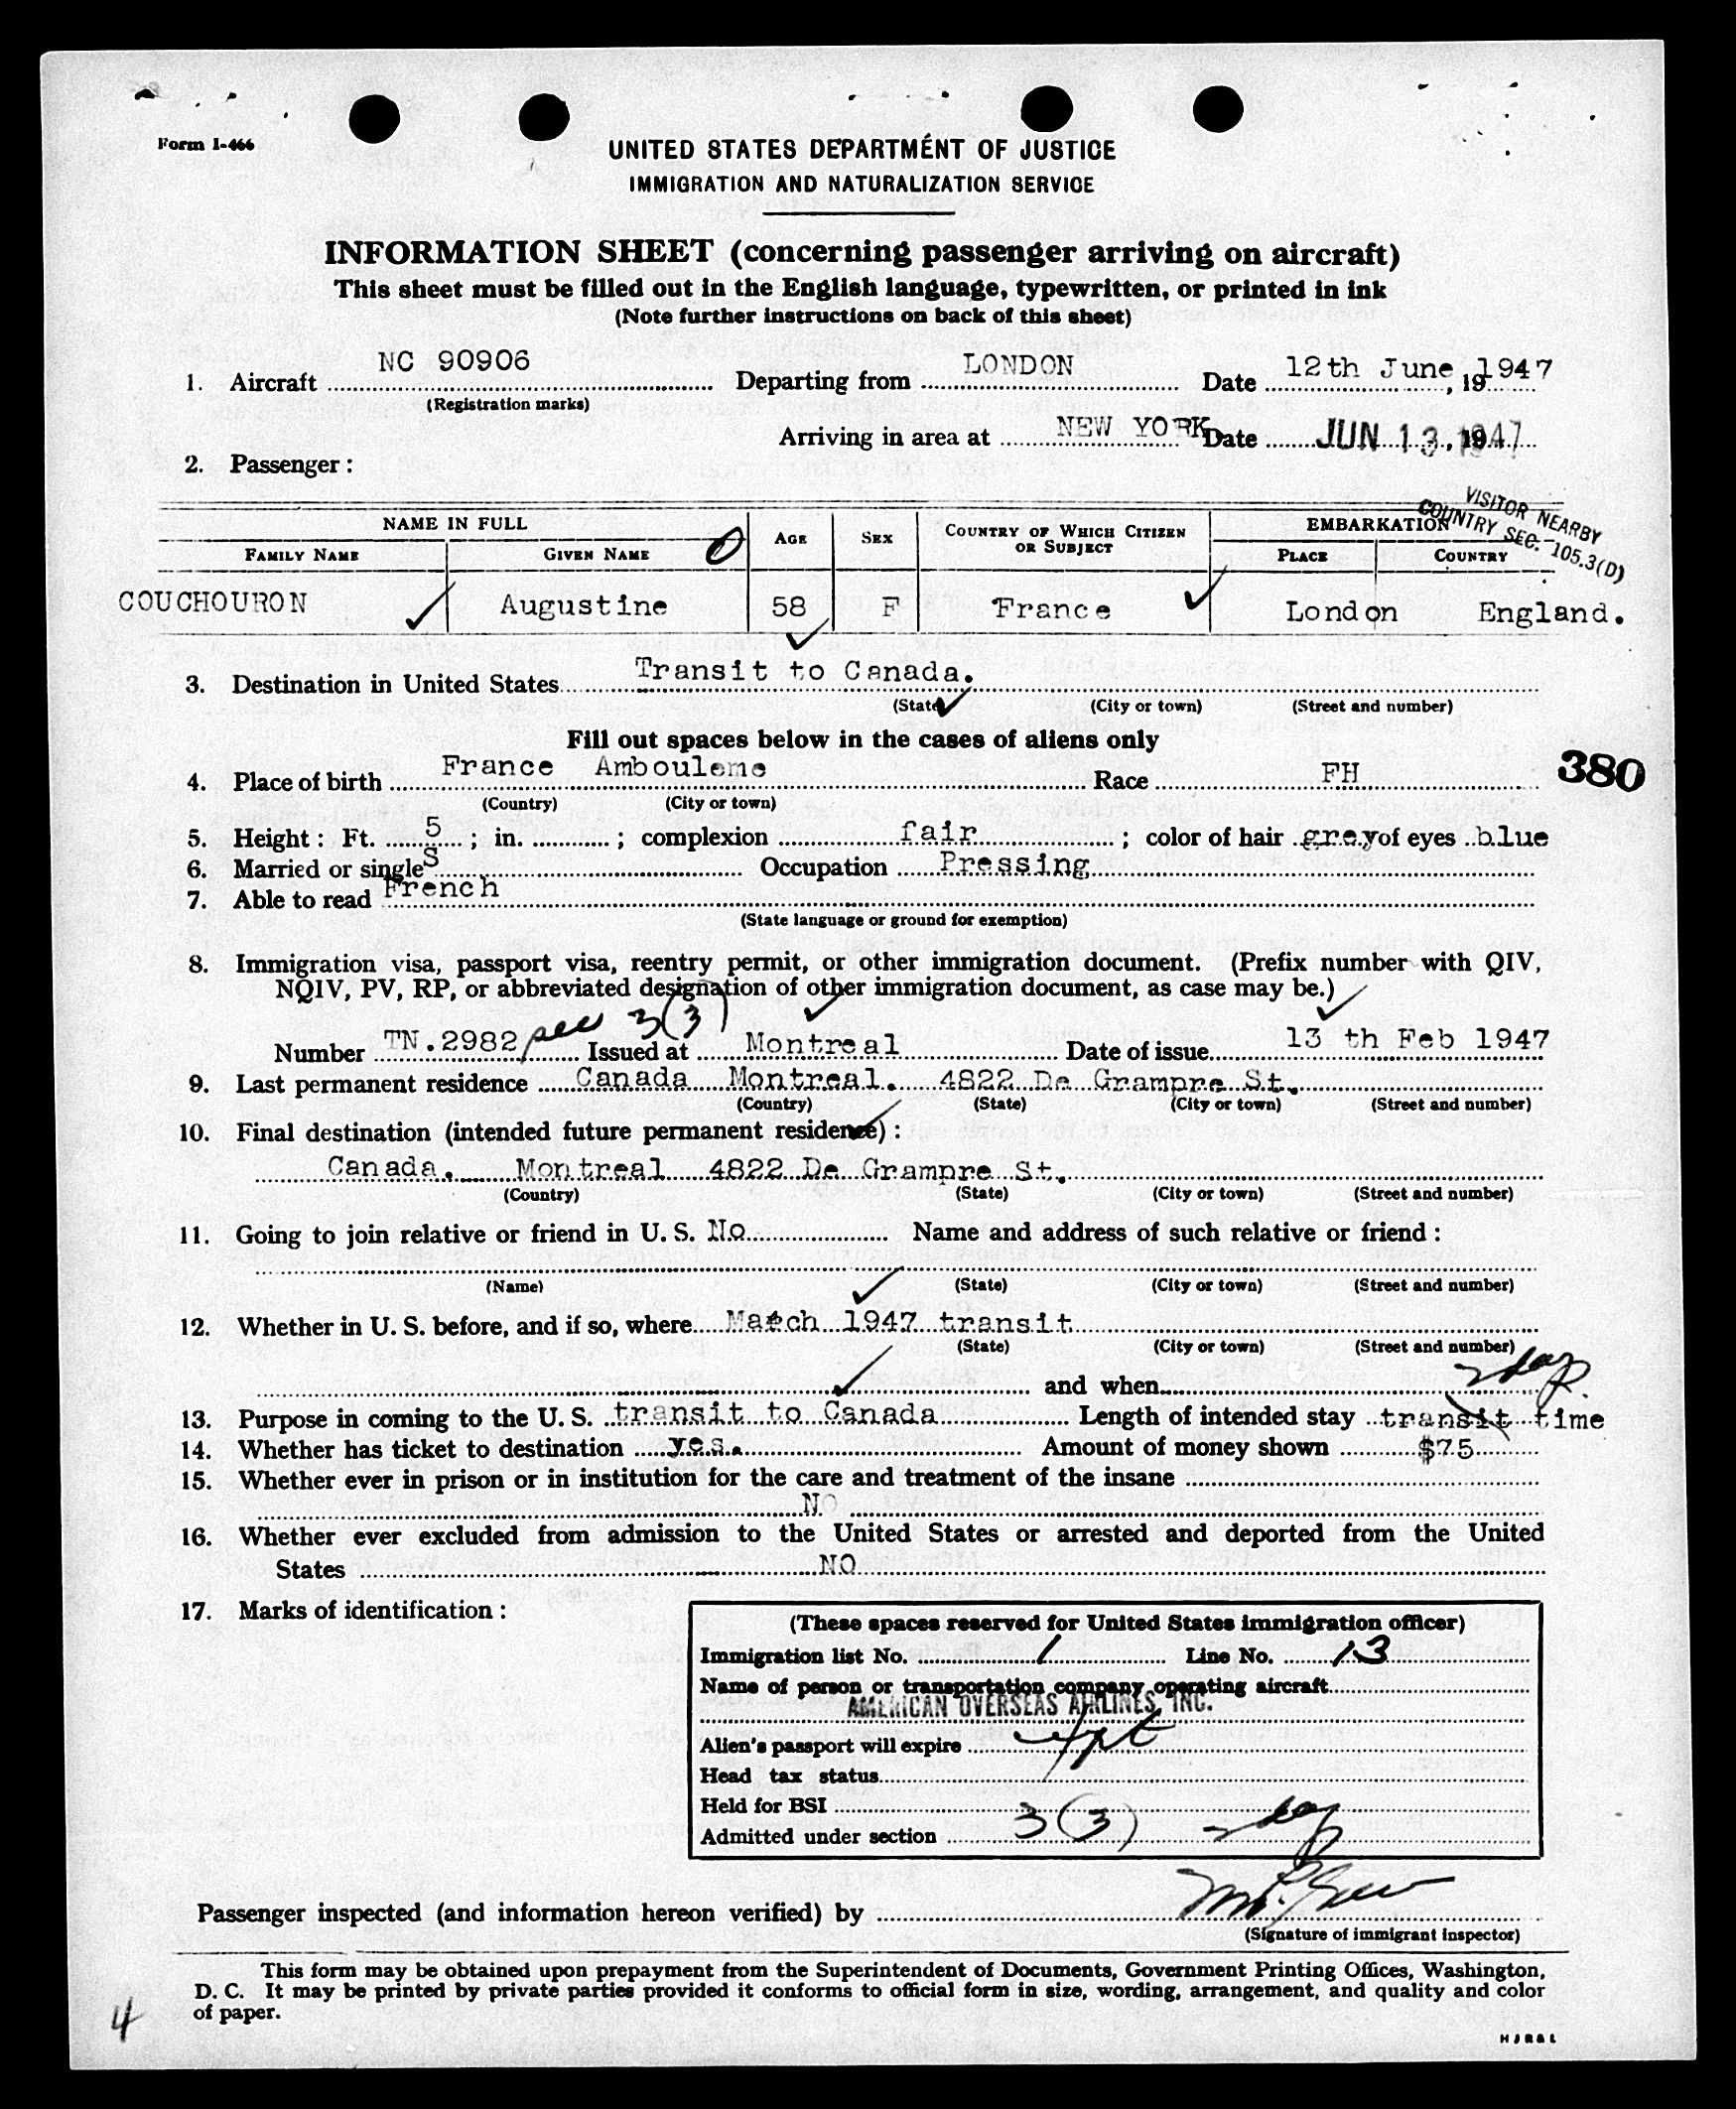 Form I-466
UNITED STATES DEPARTMENT OF JUSTICE
IMMIGRATION AND NATURALIZATION SERVICE
INFORMATION SHEET (concerning passenger arriving on aircraft)
This sheet must be filled out in the English language, typewritten, or printed in ink
(Note further instructions on back of this sheet)
1. Aircraft NC 90906 Departing from LONDON Date 12th June, 19 1947
(Registration marks)
Arriving in area at NEW YORK Date JUN 13, 1947
2. Passenger:
VISITOR NEARBY
COUNTRY SEC. 105.3(D)
NAME IN FULL AGE SEX COUNTRY OF WHICH CITIZEN OR SUBJECT EMBARKATION
FAMILY NAME GIVEN NAME PLACE COUNTRY
COUCHOURON Augustine 58 F France London England.
3. Destination in United States Transit to Canada.
(State) (City or town) (Street and number)
Fill out spaces below in the cases of aliens only
4. Place of birth France Ambouleme Race FH
380
(Country) (City or town)
5. Height: Ft. 5; in. ; complexion fair; color of hair grey of eyes blue
6. Married or single S Occupation Pressing
7. Able to read French
(State language or ground for exemption)
8. Immigration visa, passport visa, reentry permit, or other immigration document. (Prefix number with QIV,
NQIV, PV, RP, or abbreviated designation of other immigration document, as case may be.)
Number TN.2982 sec 3(3) Issued at Montreal Date of issue 13 th Feb 1947
9. Last permanent residence Canada Montreal. 4822 De Grampre St.
(Country) (State) (City or town) (Street and number)
10. Final destination (intended future permanent residence):
Canada. Montreal 4822 De Grampre St.
(Country) (State) (City or town) (Street and number)
11. Going to join relative or friend in U. S. No Name and address of such relative or friend:
(Name) (State) (City or town) (Street and number)
12. Whether in U. S. before, and if so, where March 1947 transit
(State) (City or town) (Street and number)
and when
2 days
13. Purpose in coming to the U. S. transit to Canada Length of intended stay transit time
14. Whether has ticket to destination yes. Amount of money shown $75
15. Whether ever in prison or in institution for the care and treatment of the insane
NO
16. Whether ever excluded from admission to the United States or arrested and deported from the United
States NO
17. Marks of identification:
(These spaces reserved for United States immigration officer)
Immigration list No. 1 Line No. 13
Name of person or transportation company operating aircraft
AMERICAN OVERSEAS AIRLINES, INC.
Alien's passport will expire
Head tax status
Held for BSI
Admitted under section 3(3) 2 days
Passenger inspected (and information hereon verified) by
(Signature of immigrant inspector)
This form may be obtained upon prepayment from the Superintendent of Documents, Government Printing Offices, Washington,
D. C. It may be printed by private parties provided it conforms to official form in size, wording, arrangement, and quality and color
of paper.
4
HJR&L